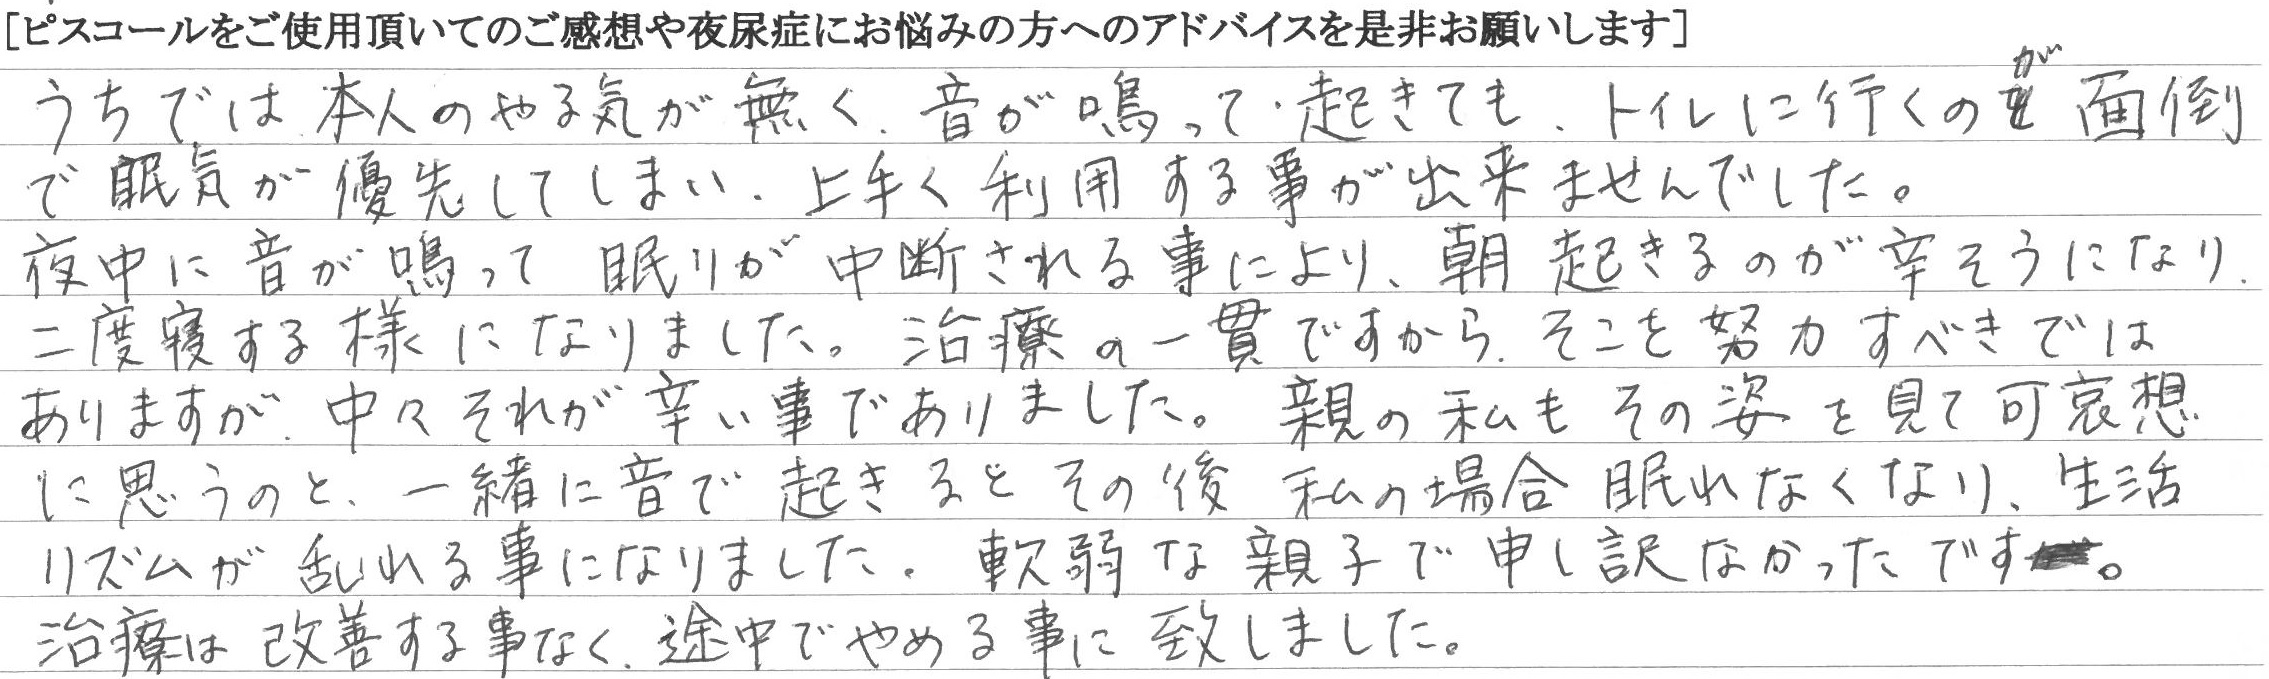 [ピスコールをご使用頂いてのご感想や夜尿症にお悩みの方へのアドバイスを是非お願いします]
うちでは本人のやる気が無く、音が鳴って起きても、トイレに行くのが面倒
で眠気が優先してしまい、上手く利用する事が出来ませんでした。
夜中に音が鳴って眠りが中断される事により、朝起きるのが辛そうになり、
二度寝する様になりました。治療の一貫ですから、そこを努力すべきでは
ありますが、中々それが辛い事でありました。親の私もその姿を見て可哀想
に思うのと、一緒に音で起きるとその後私の場合眠れなくなり、生活
リズムが乱れる事になりました。軟弱な親子で申し訳なかったです。
治療は改善する事なく、途中でやめる事に致しました。